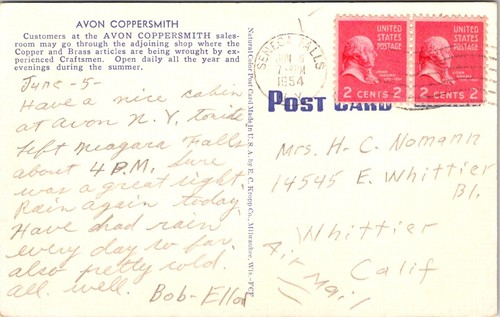 AVON COPPERSMITH
Customers at the AVON COPPERSMITH sales-
room may go through the adjoining shop where the
Copper and Brass articles are being wrought by ex-
perienced Craftsmen. Open daily all the year and
evenings during the summer.
June -5-
Have a nice cabin
at Avon N.Y. tonite
left Niagara Falls
about 4 P.M. Sure
was a great sight.
Rain again today.
Have had rain
every day so far.
also pretty cold.
all well. Bob-
Natural Color Post Card Made in U.S.A. by E. C. Kropp Co., Milwaukee, Wis.
SENECA FALLS
1954
N.Y.
UNITED
STATES
POSTAGE
2 CENTS 2
UNITED
STATES
POSTAGE
2 CENTS 2
POST CARD
Mrs. H. C. Nomann
14545 E. Whittier
Bl.
Whittier
Calif
Air Mail